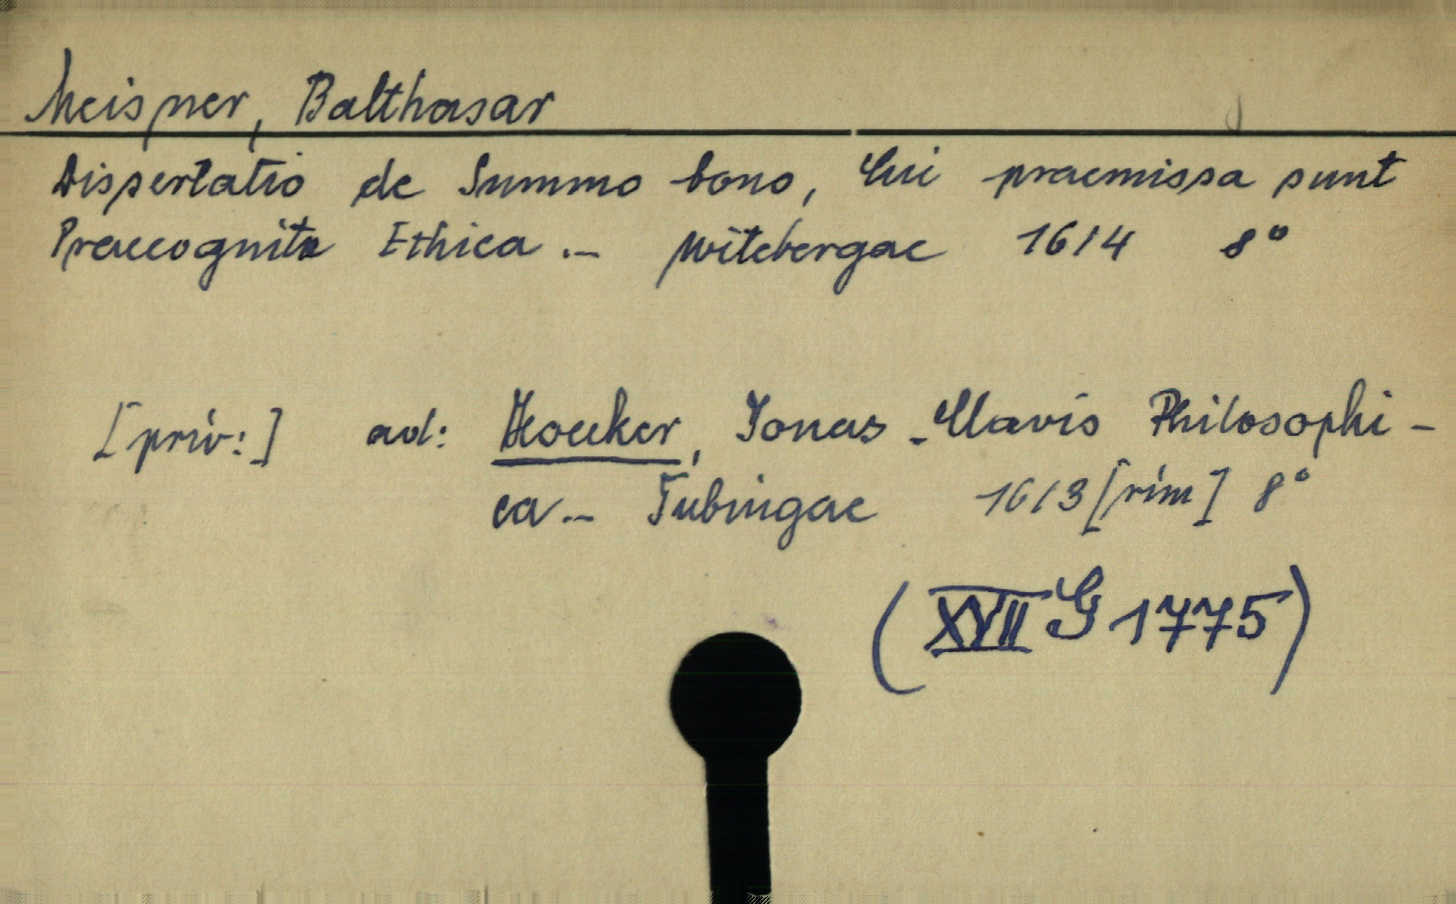 Meisner, Balthasar
Dissertatio de Summo bono, Cui praemissa sunt
Praecognita Ethica .. Witebergae 1614 8°
[priv:] ad: Hoecker, Jonas - Clavis Philosophi-
ca .. Tubingae 1613 [rim] 8°
(XVII G 1775)